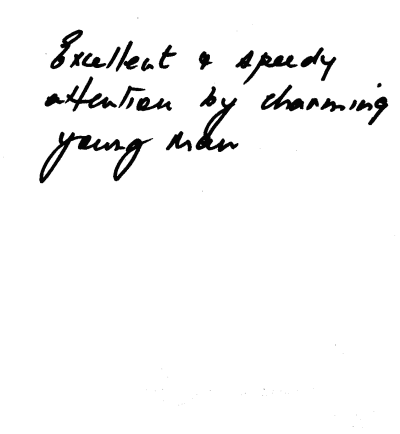 Excellent & speedy
attention by charming
young man